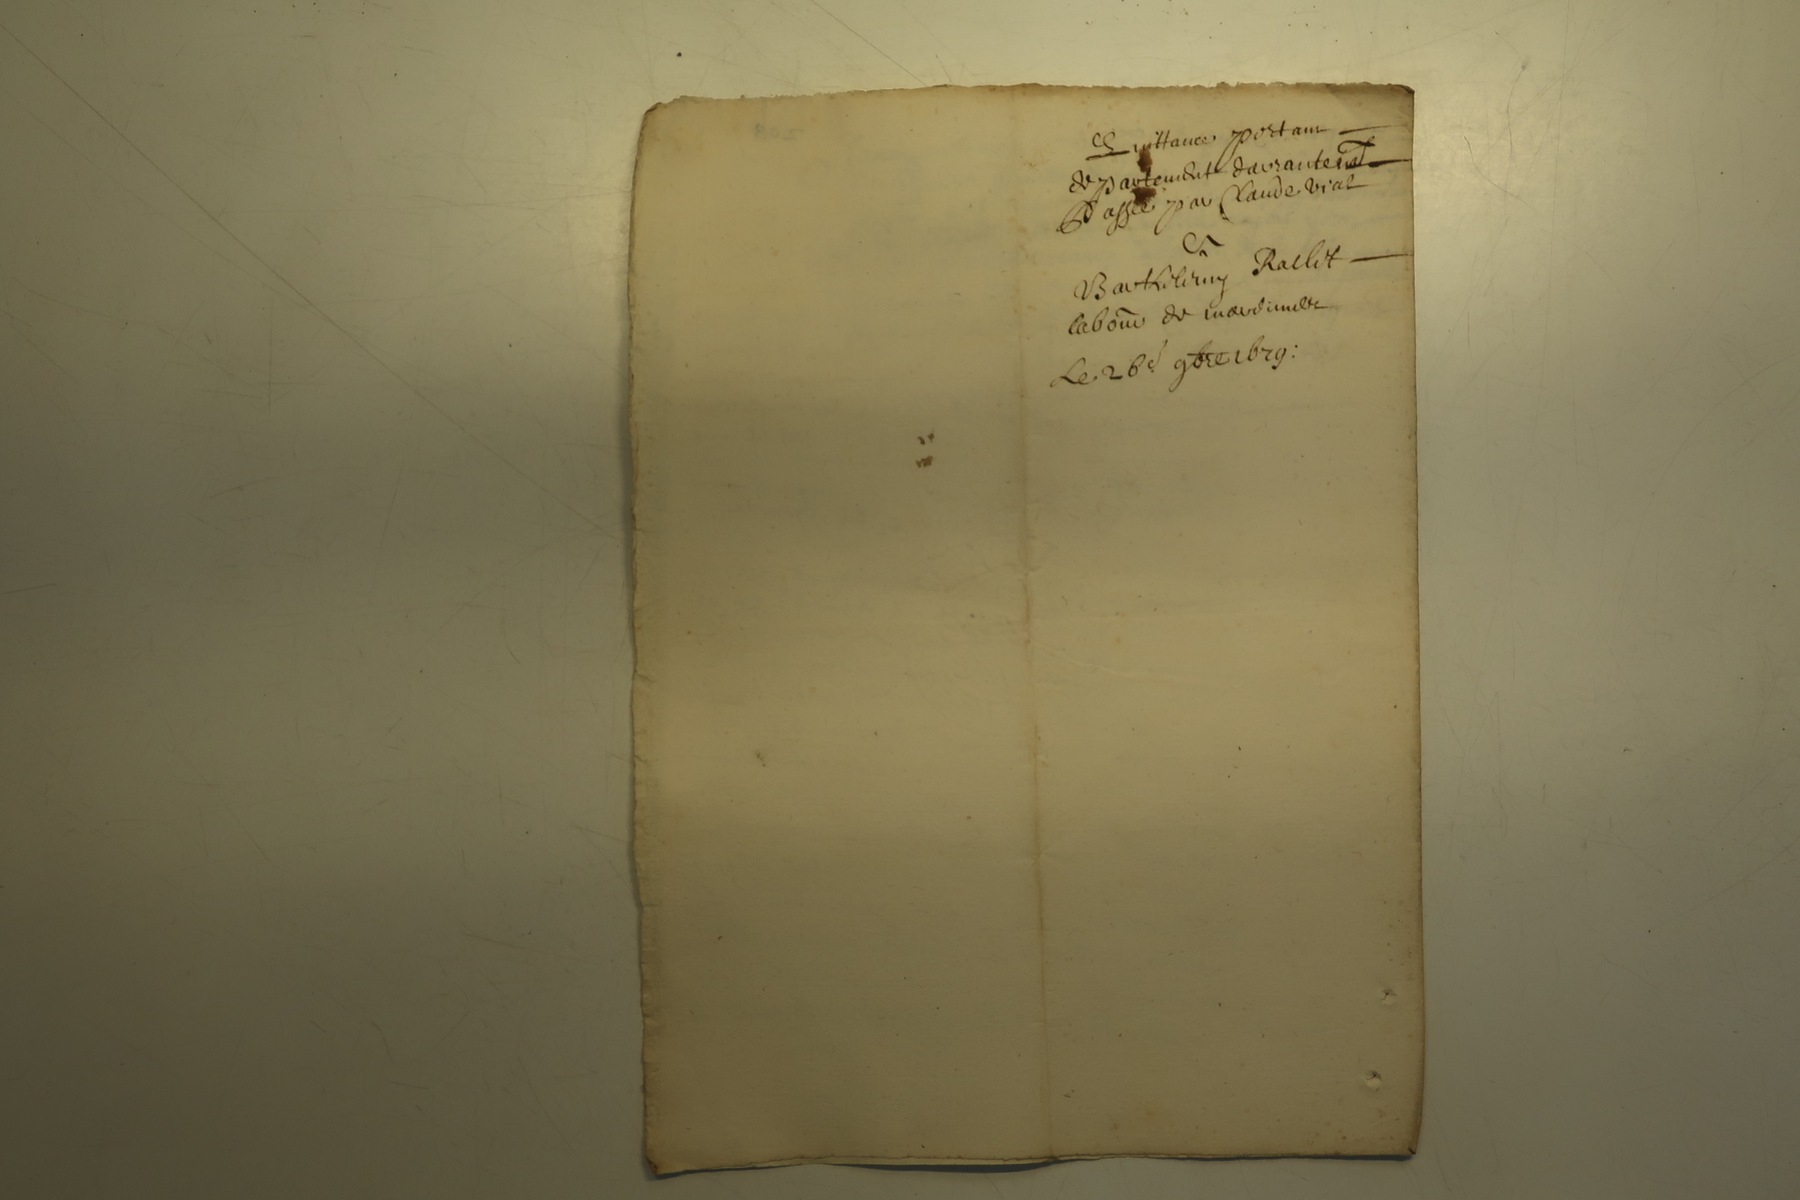 Quittance portant
departement davantenat
Passee par Claude vial
A
Barthelemy Rallet
labour de
Le 26e 9bre 1679: